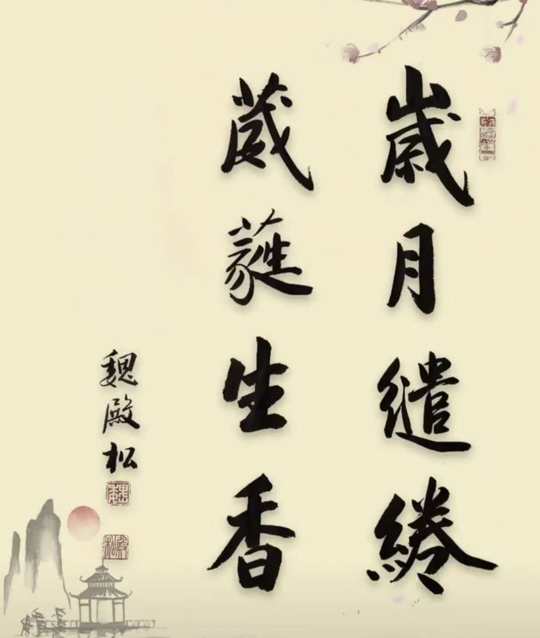 歲月繾綣
葳蕤生香
魏殿松